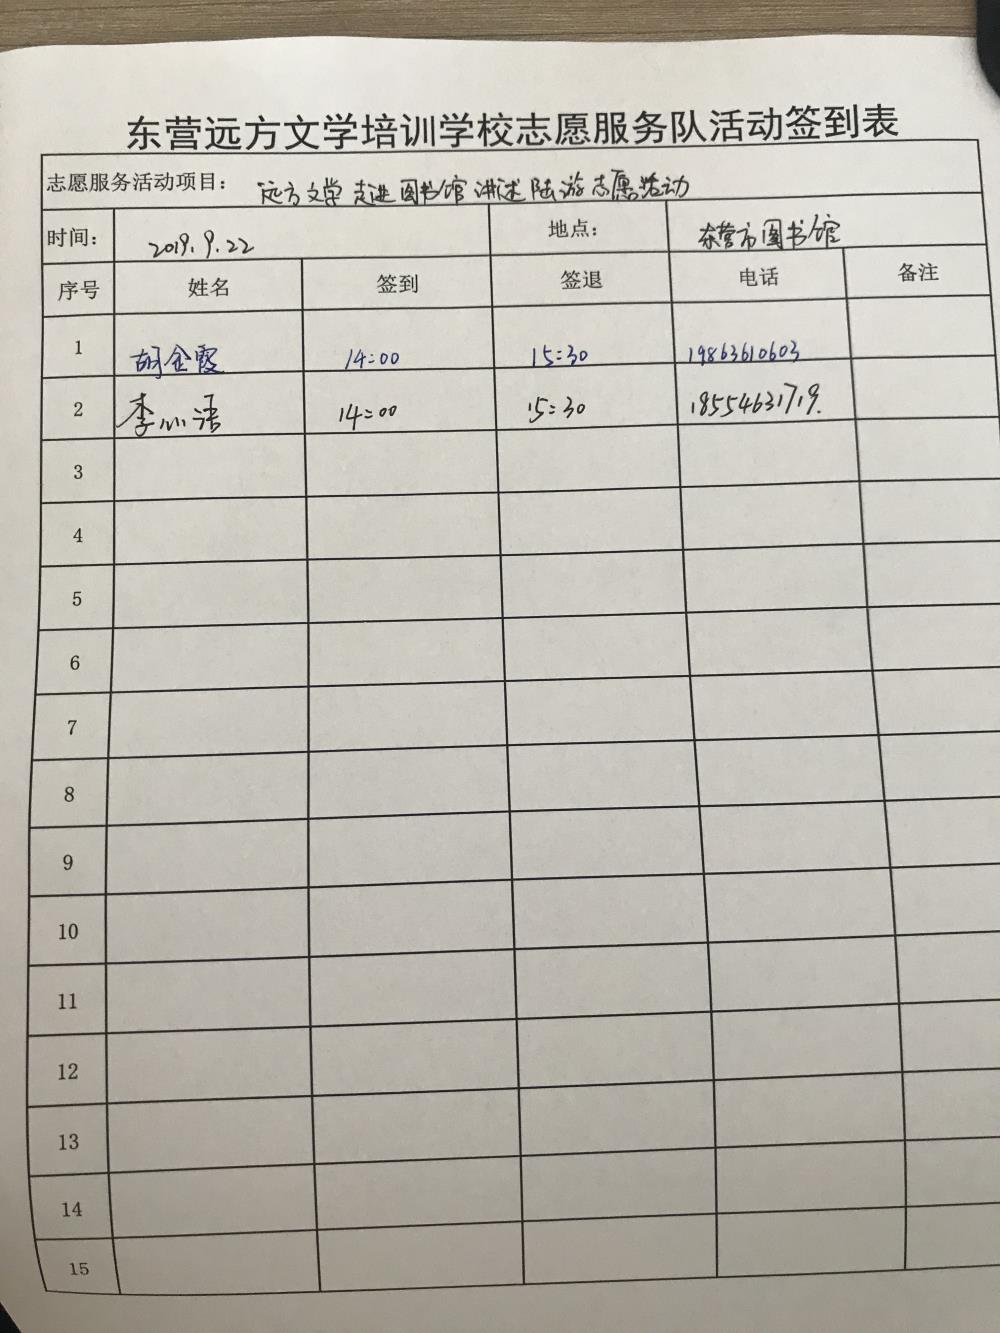 东营远方文学培训学校志愿服务队活动签到表
志愿服务活动项目： 远方文学走进图书馆讲述陆游志愿活动
时间： 2019.9.22 地点： 东营市图书馆
序号 姓名 签到 签退 电话 备注
1 胡金霞 14:00 15:30 19863610603
2 李沁语 14:00 15:30 18554631719.
3
4
5
6
7
8
9
10
11
12
13
14
15